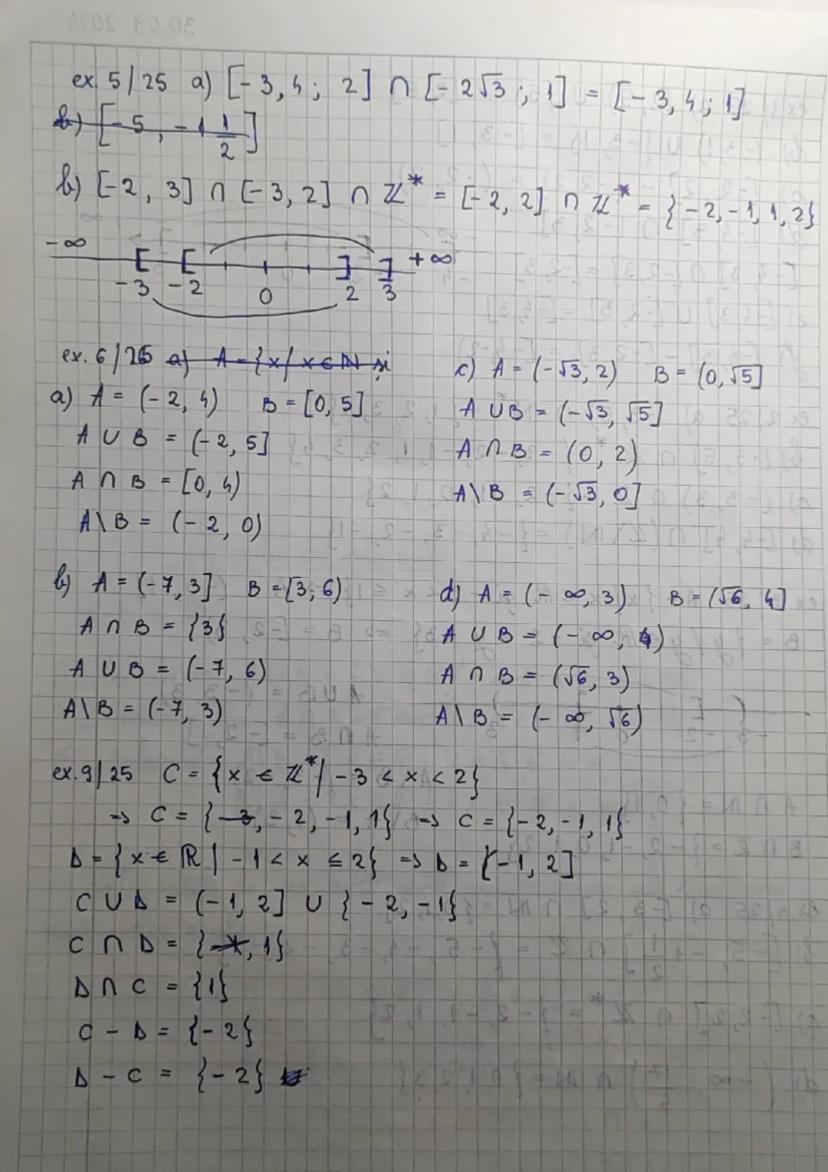 ex. 5/25 a) [-3,4; 2] ∩ [-2√3; 1] = [-3,4; 1]
b) [-5, -1 1/2]
b) [-2, 3] ∩ [-3, 2] ∩ ℤ* = [-2, 2] ∩ ℤ* = {-2, -1, 1, 2}
-∞ [ [ ] ] +∞
-3 -2 0 2 3
ex. 6/26 a) A = {x | x ∈ ℕ și
a) A = (-2, 4) B = [0, 5]
A ∪ B = (-2, 5]
A ∩ B = [0, 4)
A\B = (-2, 0)
c) A = (-√3, 2) B = (0, √5]
A ∪ B = (-√3, √5]
A ∩ B = (0, 2)
A\B = (-√3, 0]
b) A = (-7, 3] B = [3; 6)
A ∩ B = {3}
A ∪ B = (-7, 6)
A\B = (-7, 3)
d) A = (-∞, 3) B = (√6, 4]
A ∪ B = (-∞, 4)
A ∩ B = (√6, 3)
A\B = (-∞, √6)
ex. 9/25 C = {x ∈ ℤ* | -3 < x < 2}
→ C = {-3, -2, -1, 1} → C = {-2, -1, 1}
D = {x ∈ ℝ | -1 < x ≤ 2} → D = (-1, 2]
C ∪ D = (-1, 2] ∪ {-2, -1}
C ∩ D = {-1, 1}
D ∩ C = {1}
C - D = {-2}
D - C = {-2}